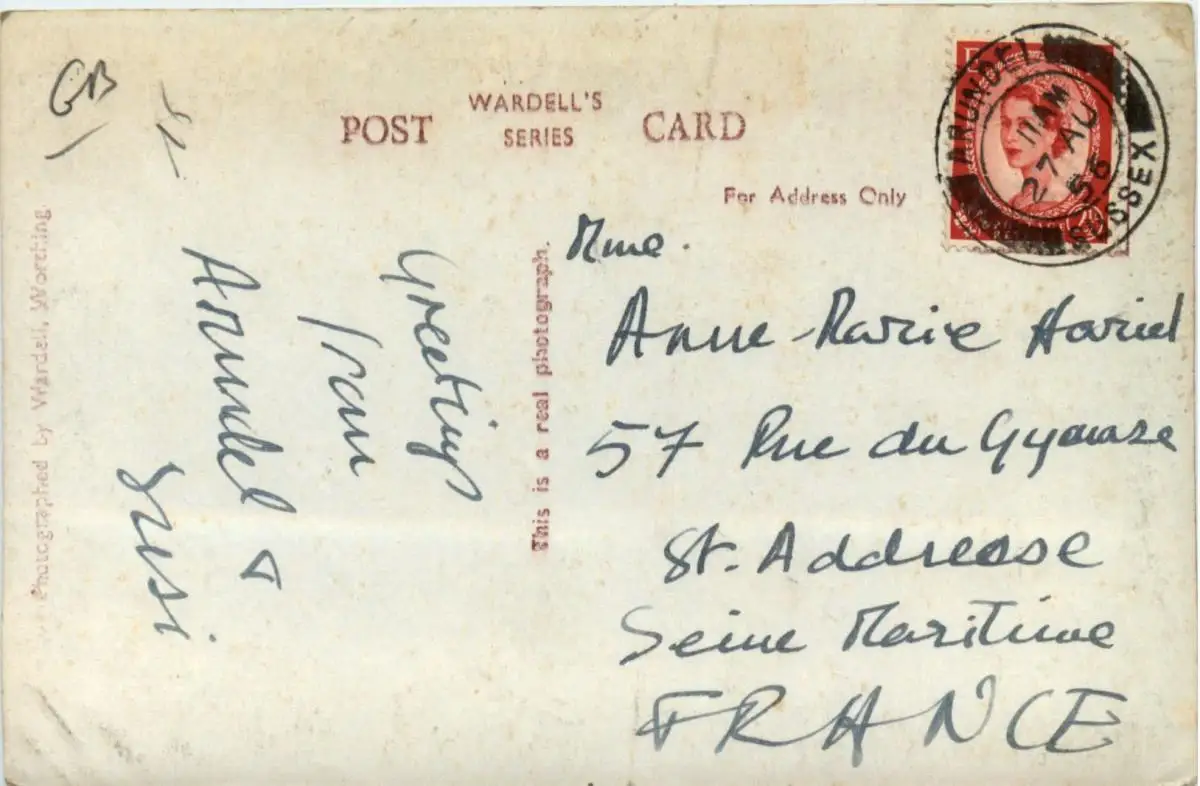 GB
POST WARDELL'S SERIES CARD
For Address Only
ARUNDEL
11 AM
27 AU
56
SUSSEX
Photographed by Wardell, Worthing.
This is a real photograph.
Greetings
from
Arundel &
Susi
Mme.
Anne-Marie
57 Rue du
St. Addresse
Seine Maritime
FRANCE